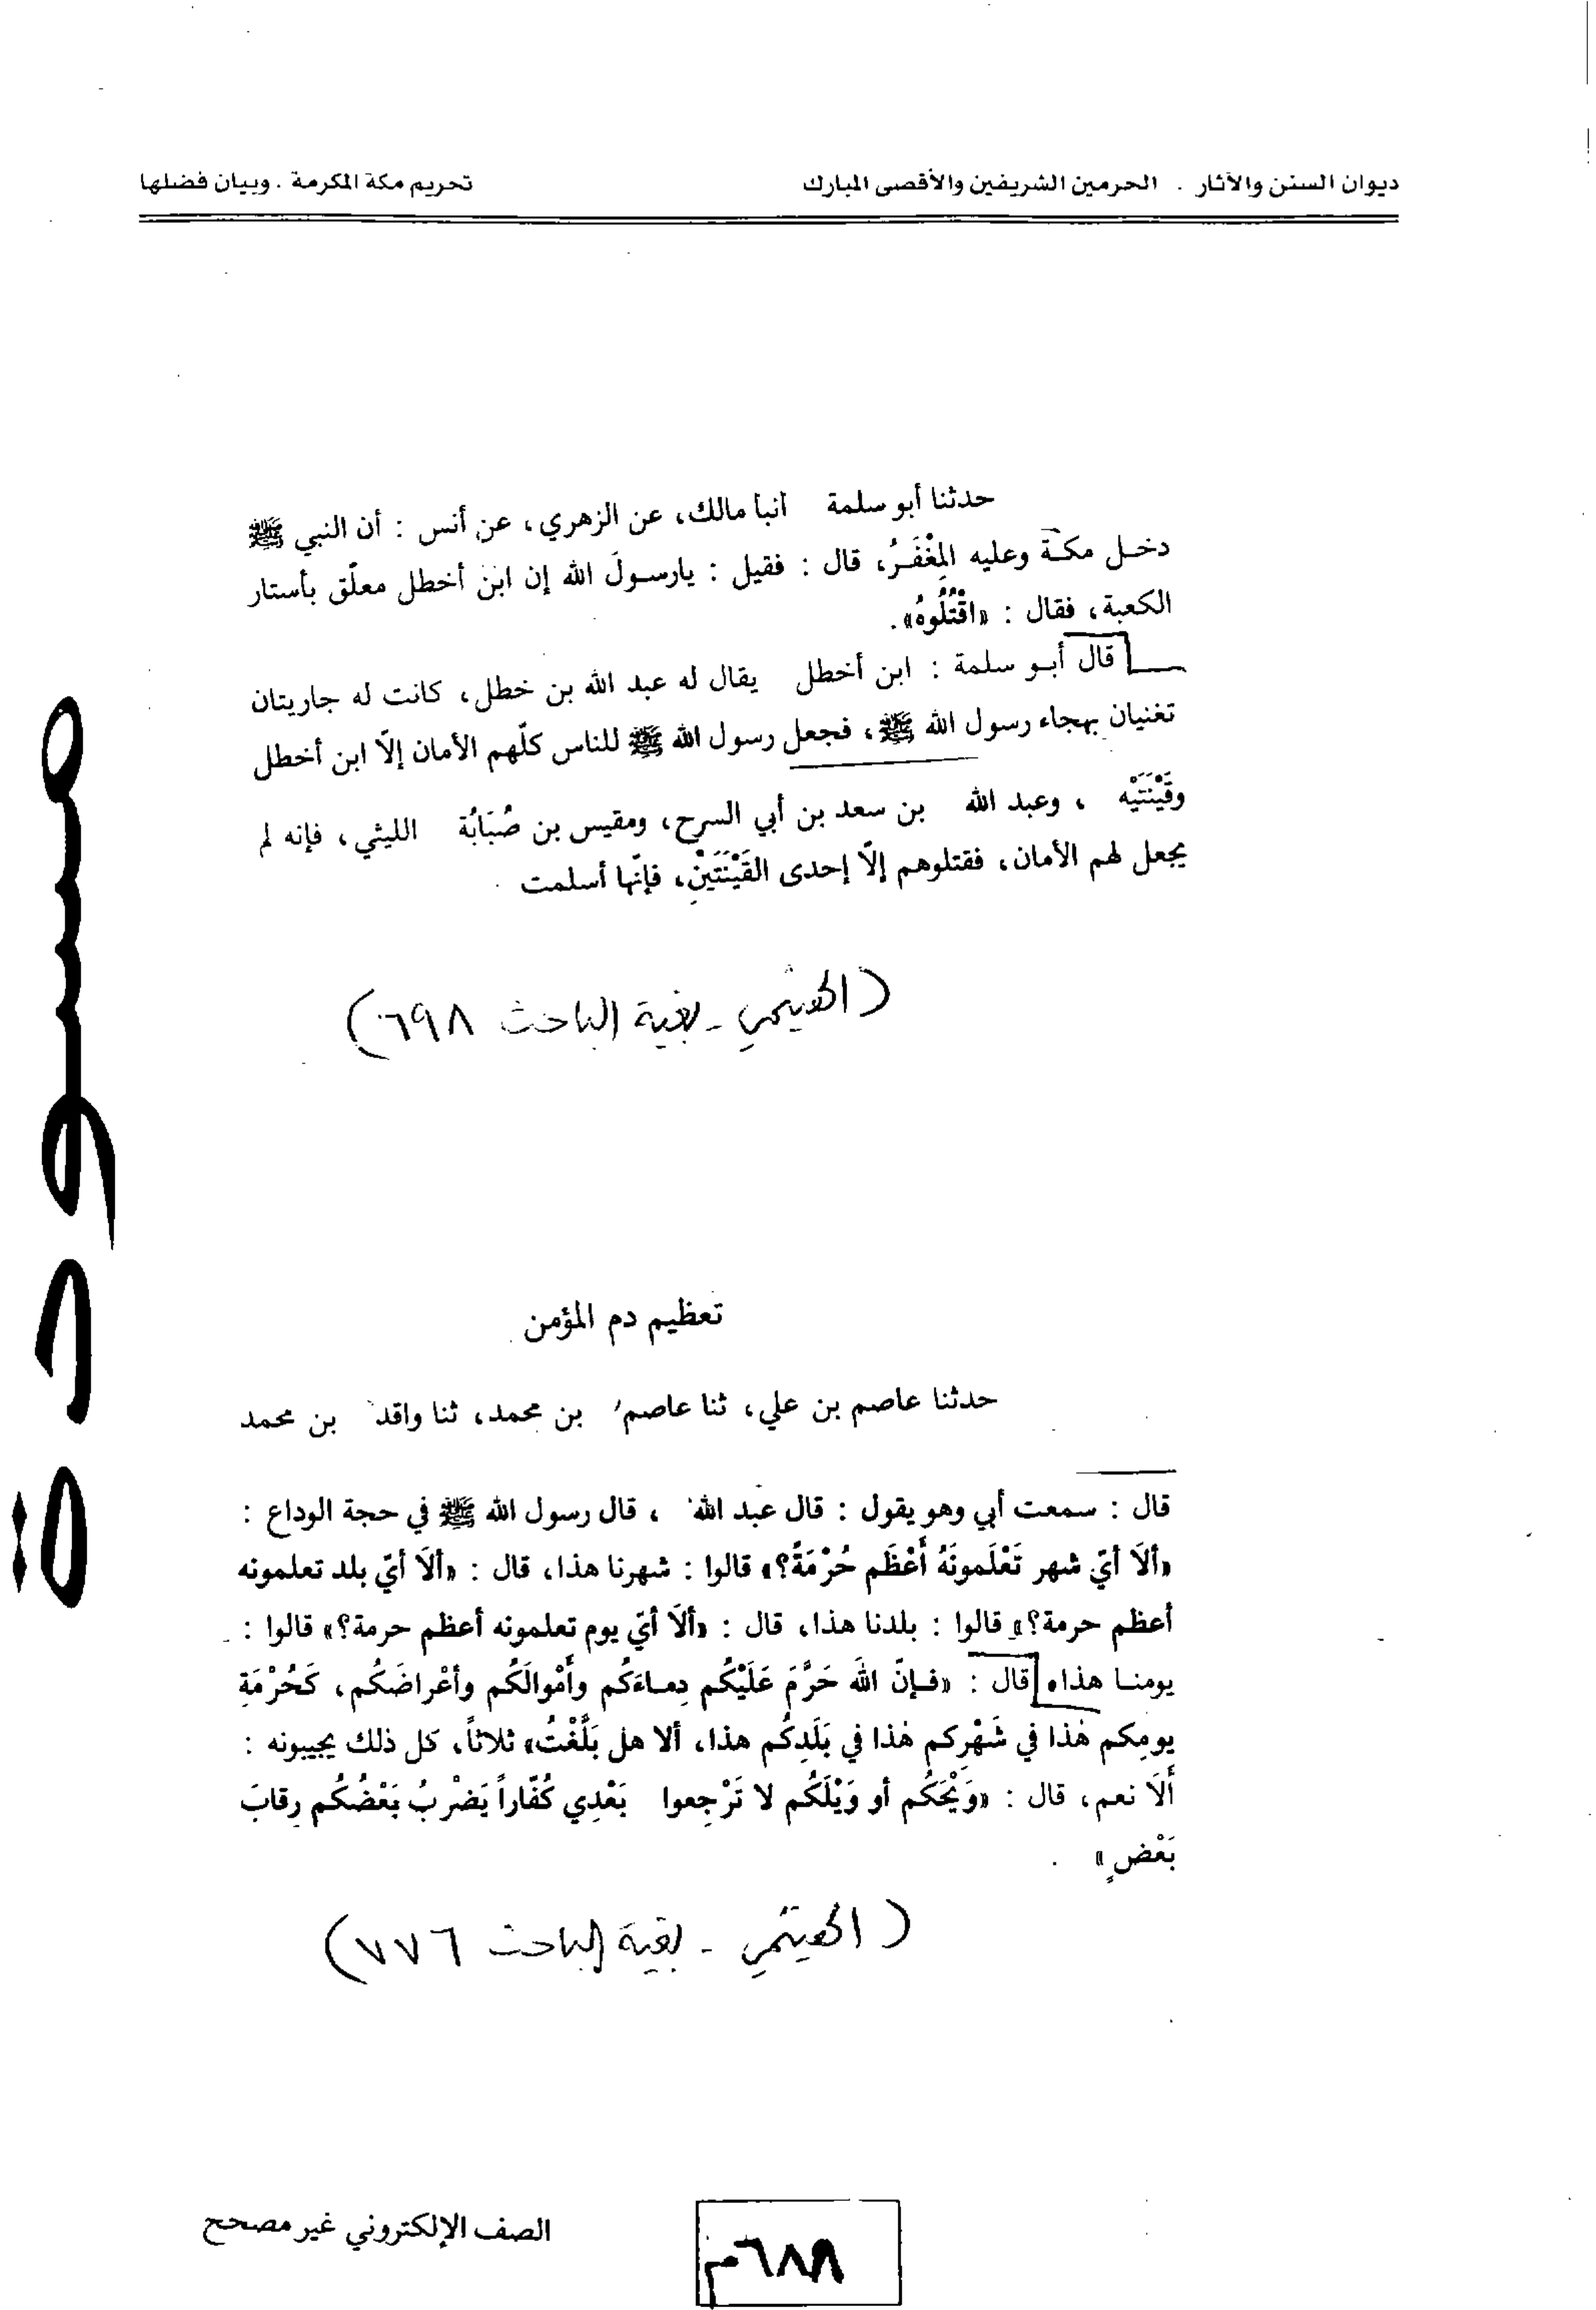 ديوان السنن والآثار . الحرمين الشريفين والأقصى المبارك
تحريم مكة المكرمة . وبيان فضلها
حدثنا أبو سلمة أنبا مالك، عن الزهري، عن أنس : أن النبي ﷺ
دخل مكة وعليه المِغْفَرُ، قال : فقيل : يارسولَ الله إن ابن أخطل معلّق بأستار
الكعبة، فقال : «اقْتُلُوهُ».
قال أبو سلمة : ابن أخطل يقال له عبد الله بن خطل، كانت له جاريتان
تغنيان بهجاء رسول الله ﷺ، فجعل رسول الله ﷺ للناس كلّهم الأمان إلاّ ابن أخطل
وقَيْنَتَيْه ، وعبد الله بن سعد بن أبي السرح، ومقيس بن صُبَابُة الليثي، فإنه لم
يجعل لهم الأمان، فقتلوهم إلاّ إحدى القَيْنَتَيْنِ، فإنّها أسلمت
(الهيثمي - بغية الباحث ٦٩٨)
تعظيم دم المؤمن
حدثنا عاصم بن علي، ثنا عاصم بن محمد، ثنا واقد بن محمد
قال : سمعت أبي وهو يقول : قال عبد الله ، قال رسول الله ﷺ في حجة الوداع :
«ألَا أيّ شهر تَعْلَمونَهُ أَعْظَم حُرْمَةً؟» قالوا : شهرنا هذا، قال : «ألَا أيّ بلد تعلمونه
أعظم حرمة؟» قالوا : بلدنا هذا، قال : «ألَا أيّ يوم تعلمونه أعظم حرمة؟» قالوا :
يومنا هذا، قال : «فإنّ الله حَرَّمَ عَلَيْكُم دِماءَكُم وأَمْوالَكُم وأعْراضَكُم، كَحُرْمَةِ
يومِكم هٰذا في شَهْرِكم هٰذا في بَلَدِكُم هذا، ألا هل بَلَّغْتُ» ثلاثاً، كل ذلك يجيبونه :
أَلَا نعم، قال : «وَيْحَكُم أو وَيْلَكُم لا تَرْجِعوا بَعْدِي كُفّاراً يَضْرِبُ بَعْضُكُم رِقابَ
بَعْضٍ» .
(الهيثمي - بغية الباحث ٧٧٦)
مسودة
الصف الإلكتروني غير مصحح
٦٨٨م